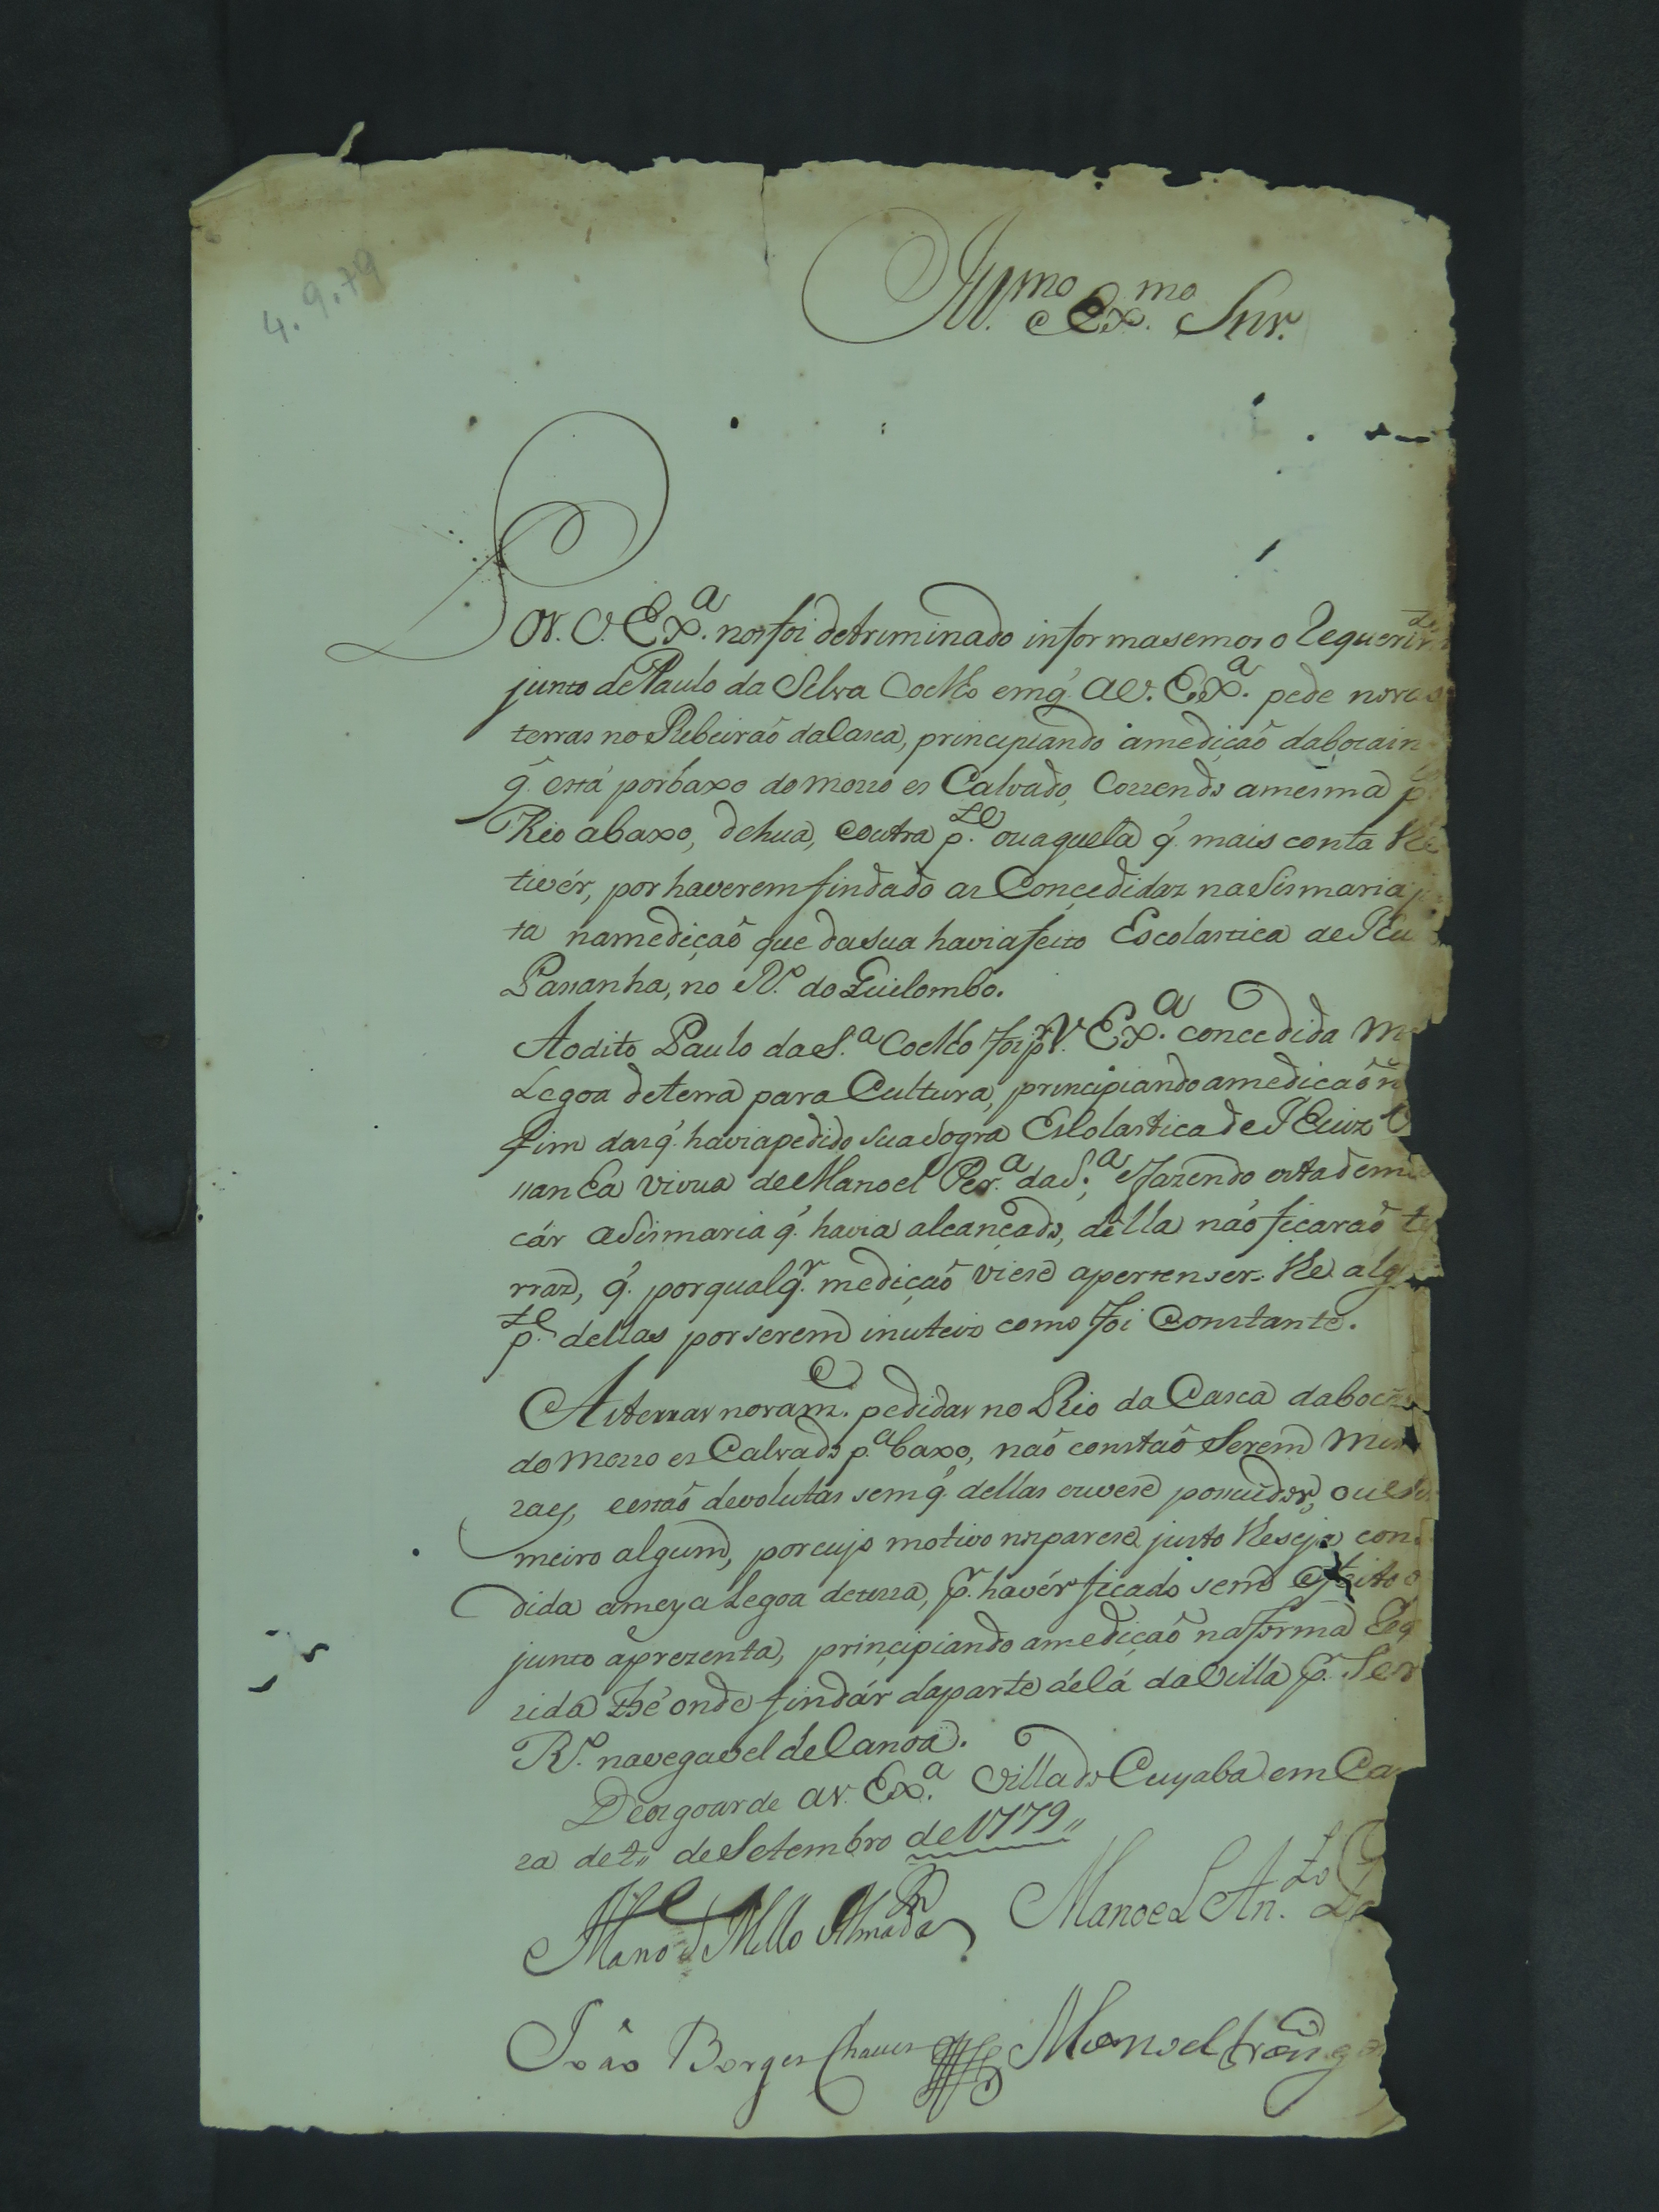 4.9.79
Ill.mo e Ex.mo Snr.
Por. V. Ex.a nos foi detriminado informasemos o Requerim
junto de Paulo da Silva Coelho em q̃. a V. Ex.a pede novas
terras no Ribeiraõ da Casca, principiando a mediçaõ da bocain
q̃. está por baxo do morro es Calvado, Correndo a mesma p
Rio abaxo, de hua, e outra p.te ou aquella q̃. mais conta lhe
tivér, por haverem findado as Concedidas na Sismaria j
ta na mediçaõ que da sua havia feito Escolastica de Jeu
Passanha, no R.o do Quilombo.
Ao dito Paulo da S.a Coelho foi p.r V. Ex.a concedida m
Legoa de terra para Cultura, principiando a mediçaõ n
fim das q̃. havia pedido sua sogra Escolastica de Jeuiz
ssanha viuva de Manoel Per.a da S.a, e fazendo esta dem
cár a Sismaria q̃. havia alcançado, della naõ ficaraõ te
rras, q̃. por qualq.r mediçaõ viese apertenser-lhe alg
p.te dellas por serem inuteis como foi Constante.
As terras novam.e pedidas no Rio da Casca da boc
do morro es Calvado p.a baxo, naõ constaõ Serem Min
raes, e estaõ devolutas sem q̃. dellas ouvese possuidor, ou
meiro algum, por cujo motivo nos parese justo lhe seja con
dida a meya Legoa de terra, p.r havér ficado sem efeito o
junto aprezenta, principiando a mediçaõ na forma Req
rida thé onde findár da parte délá da Villa p.r Ser
R.o navegavel de Canoa.
Deos goarde a V. Ex.a Villa do Cuyaba em Ca
ra de 4,, de Setembro de 1779,,
Mano d Mello Almada Manoel An.to
João Borges Chaves Manoel